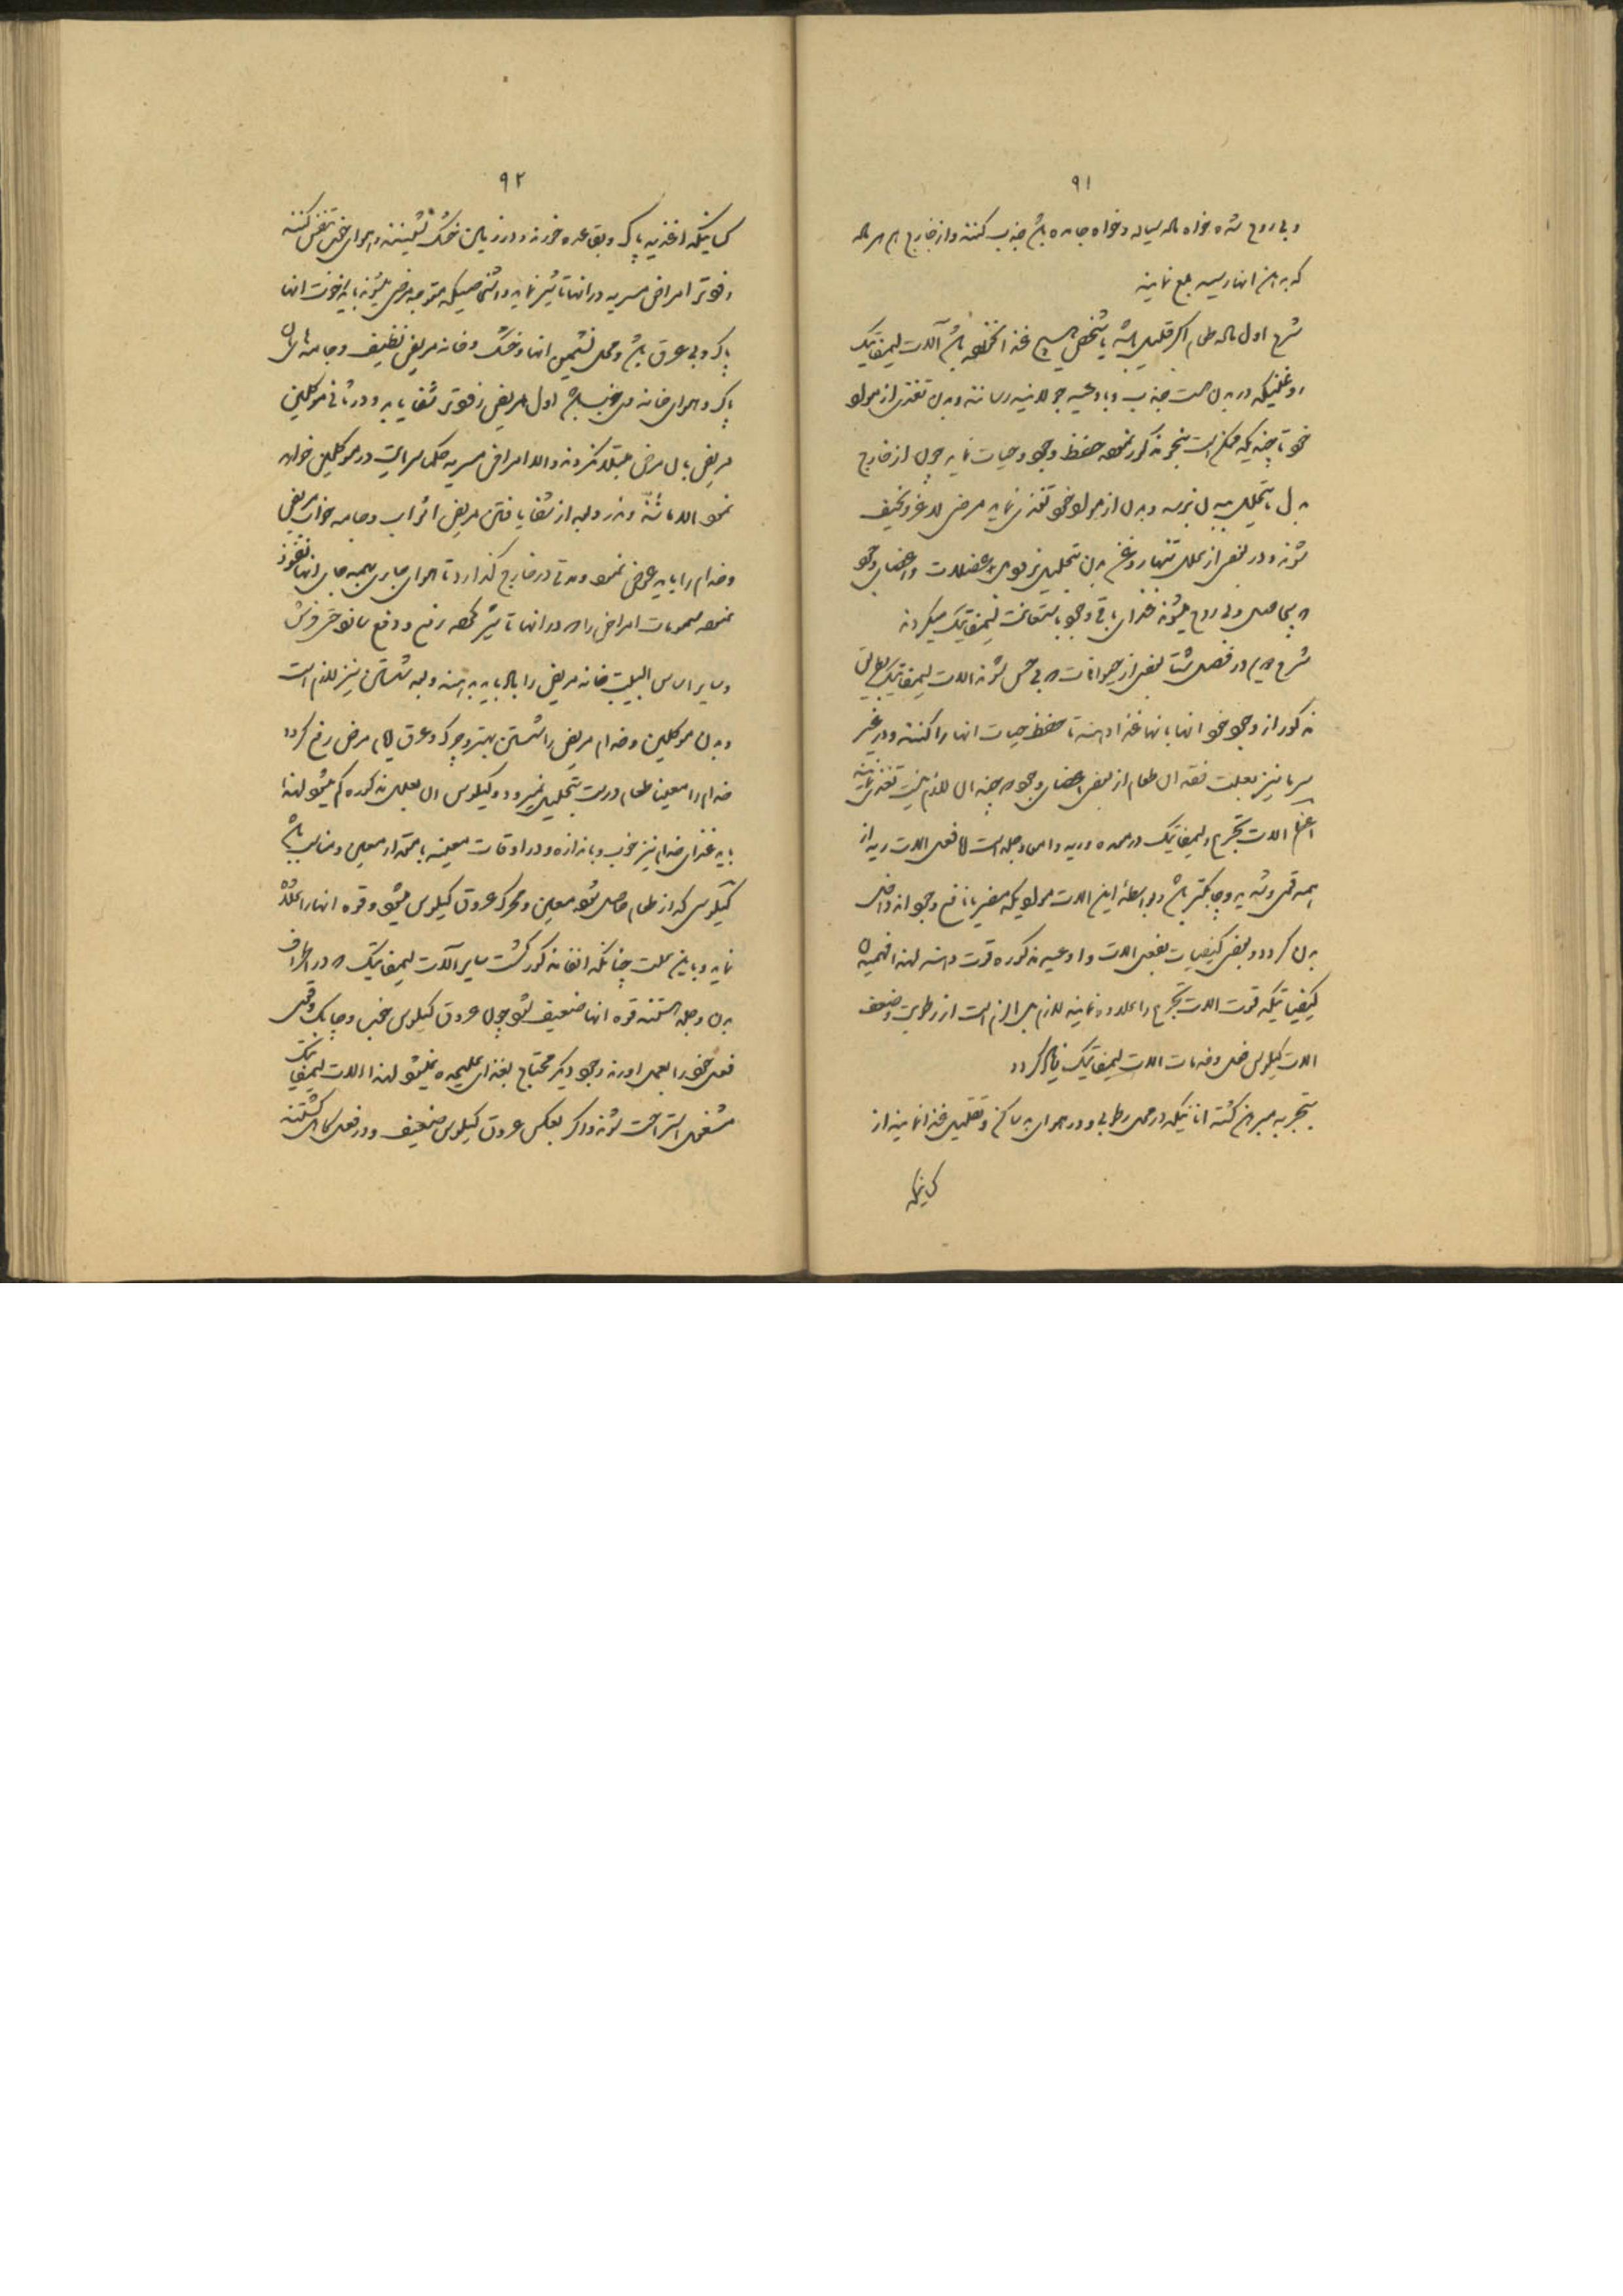 ۹۱
و بی روح شده خواه ماله سیاله و خواه جامده باشد جذب کنند و از خارج هم هر ماله
که بدهن انها رسید بلع نمایند
شرح اول ماله طعام اگر قلیل باشد یا شخص هیچ غذا نخورده باشد آلات لیمفاتیک
روغنیکه در بدن است جذب و باوعیه جولانیه رسانند و بدن تغذی از مولو
خود تا چندیکه ممکن است بنحو مذکور نموده حفظ وجود و حیات نماید چون از خارج
بدل ما یتحلل ببدن نرسد و بدن از مولو خود تغذی نماید مریض لاغر و نحیف
شوند و در بعض از علل تنها روغن بدن بتحلیل نرود عضلات و اعضای وجود
بی حاصل و بی روح میشوند غذای باقی وجود باستعانت لیمفاتیک میگردند
شرح دویم در فصل شتا بعض از حیوانات بی حس شوند الات لیمفاتیک
مذکور از وجود خود انها بانها غذا دهند تا حفظ حیات انها را کنند و در غیر
سرما نیز بعلت فقدان طعام از بعض اعضای وجود چندان لازم نیست تغذی نمایند
الات تجرع و لیمفاتیک در معده و ریه و امعا و جلد است فعل الات ریه از
همه قوی و شدید و چابکتر باشد و بواسطه این الات مولویکه مضر یا نافع وجود اند داخل
بدن گردد و بعض کیفیات بفعل الات و اوعیه مذکوره قوت دهند لهذا فهمیدن
کیفیاتیکه قوت الات تجرع را علاوه نمایند لازم بل الزم است از رطوبت و ضعف
الات کیلوس فعل و خدمات الات لیمفاتیک زیاد گردد
بتجربه مبرهن گشته انانیکه در محل رطوبی و در هوای بد ساکن و تقلیل غذا نمایند از
کسانیکه
۹۲
کسانیکه اغذیه پاک و بقاعده خورند و در زمین خشک نشینند و هوای خوب تنفس کنند
زودتر امراض مسریه در انها تاثیر نماید و اشخاصیکه متوجه مرض میشوند باید رخوت انها
پاک و بی عرق باشد و محل نشیمن انها خشک و خانه مریض نظیف و جامه شان
پاک و هوای خانه خوب باشد اول مریض زودتر شفا یابد و در ثانی موکلین
مریض بان مرض مبتلا نگردند والا امراض مسریه حکما سرایت در موکلین خواهد
نمود و بعد از شفا یافتن مریض اثواب و جامه خواب مریض
و خدام را باید عوض نموده و مدتی در خارج گذارد تا هوای جاری بهمه جای انها نفوذ
نموده مسمومات امراض را در انها تاثیر کرده رفع و دفع سازد و فروش
و سایر اساس البیت خانه مریض را باید بدهند و به شستن نیز لازم است
و بدن موکلین و خدام مریض را شستن بهتر و چرک و عرق ایام مرض رفع گردد
خدام را معین طعام درست بتحلیل نمیرود و کیلوس ان بعلل مذکوره کم میشود لهذا
باید غذای خدام نیز خوب و باندازه و در اوقات معینه با مقدار معین و مناسب باشد
کیلوس که از طعام حاصل شود معین و محرک عروق کیلوس میشود و قوه انها را علاوه
نماید و باین علت چنانکه انفا مذکور گشت سایر آلات لیمفاتیک در اطراف
بدن و جلد هستند قوه انها ضعیف شود چون عروق کیلوس خوب و چابک و قوی
فعل خود را بعمل اورند وجود دیگر محتاج بغذای علیحده نمیشود لهذا الات لیمفاتیک
مشغول استراحت شوند و اگر بعکس عروق کیلوس ضعیف و در فعل کاهل گشتند